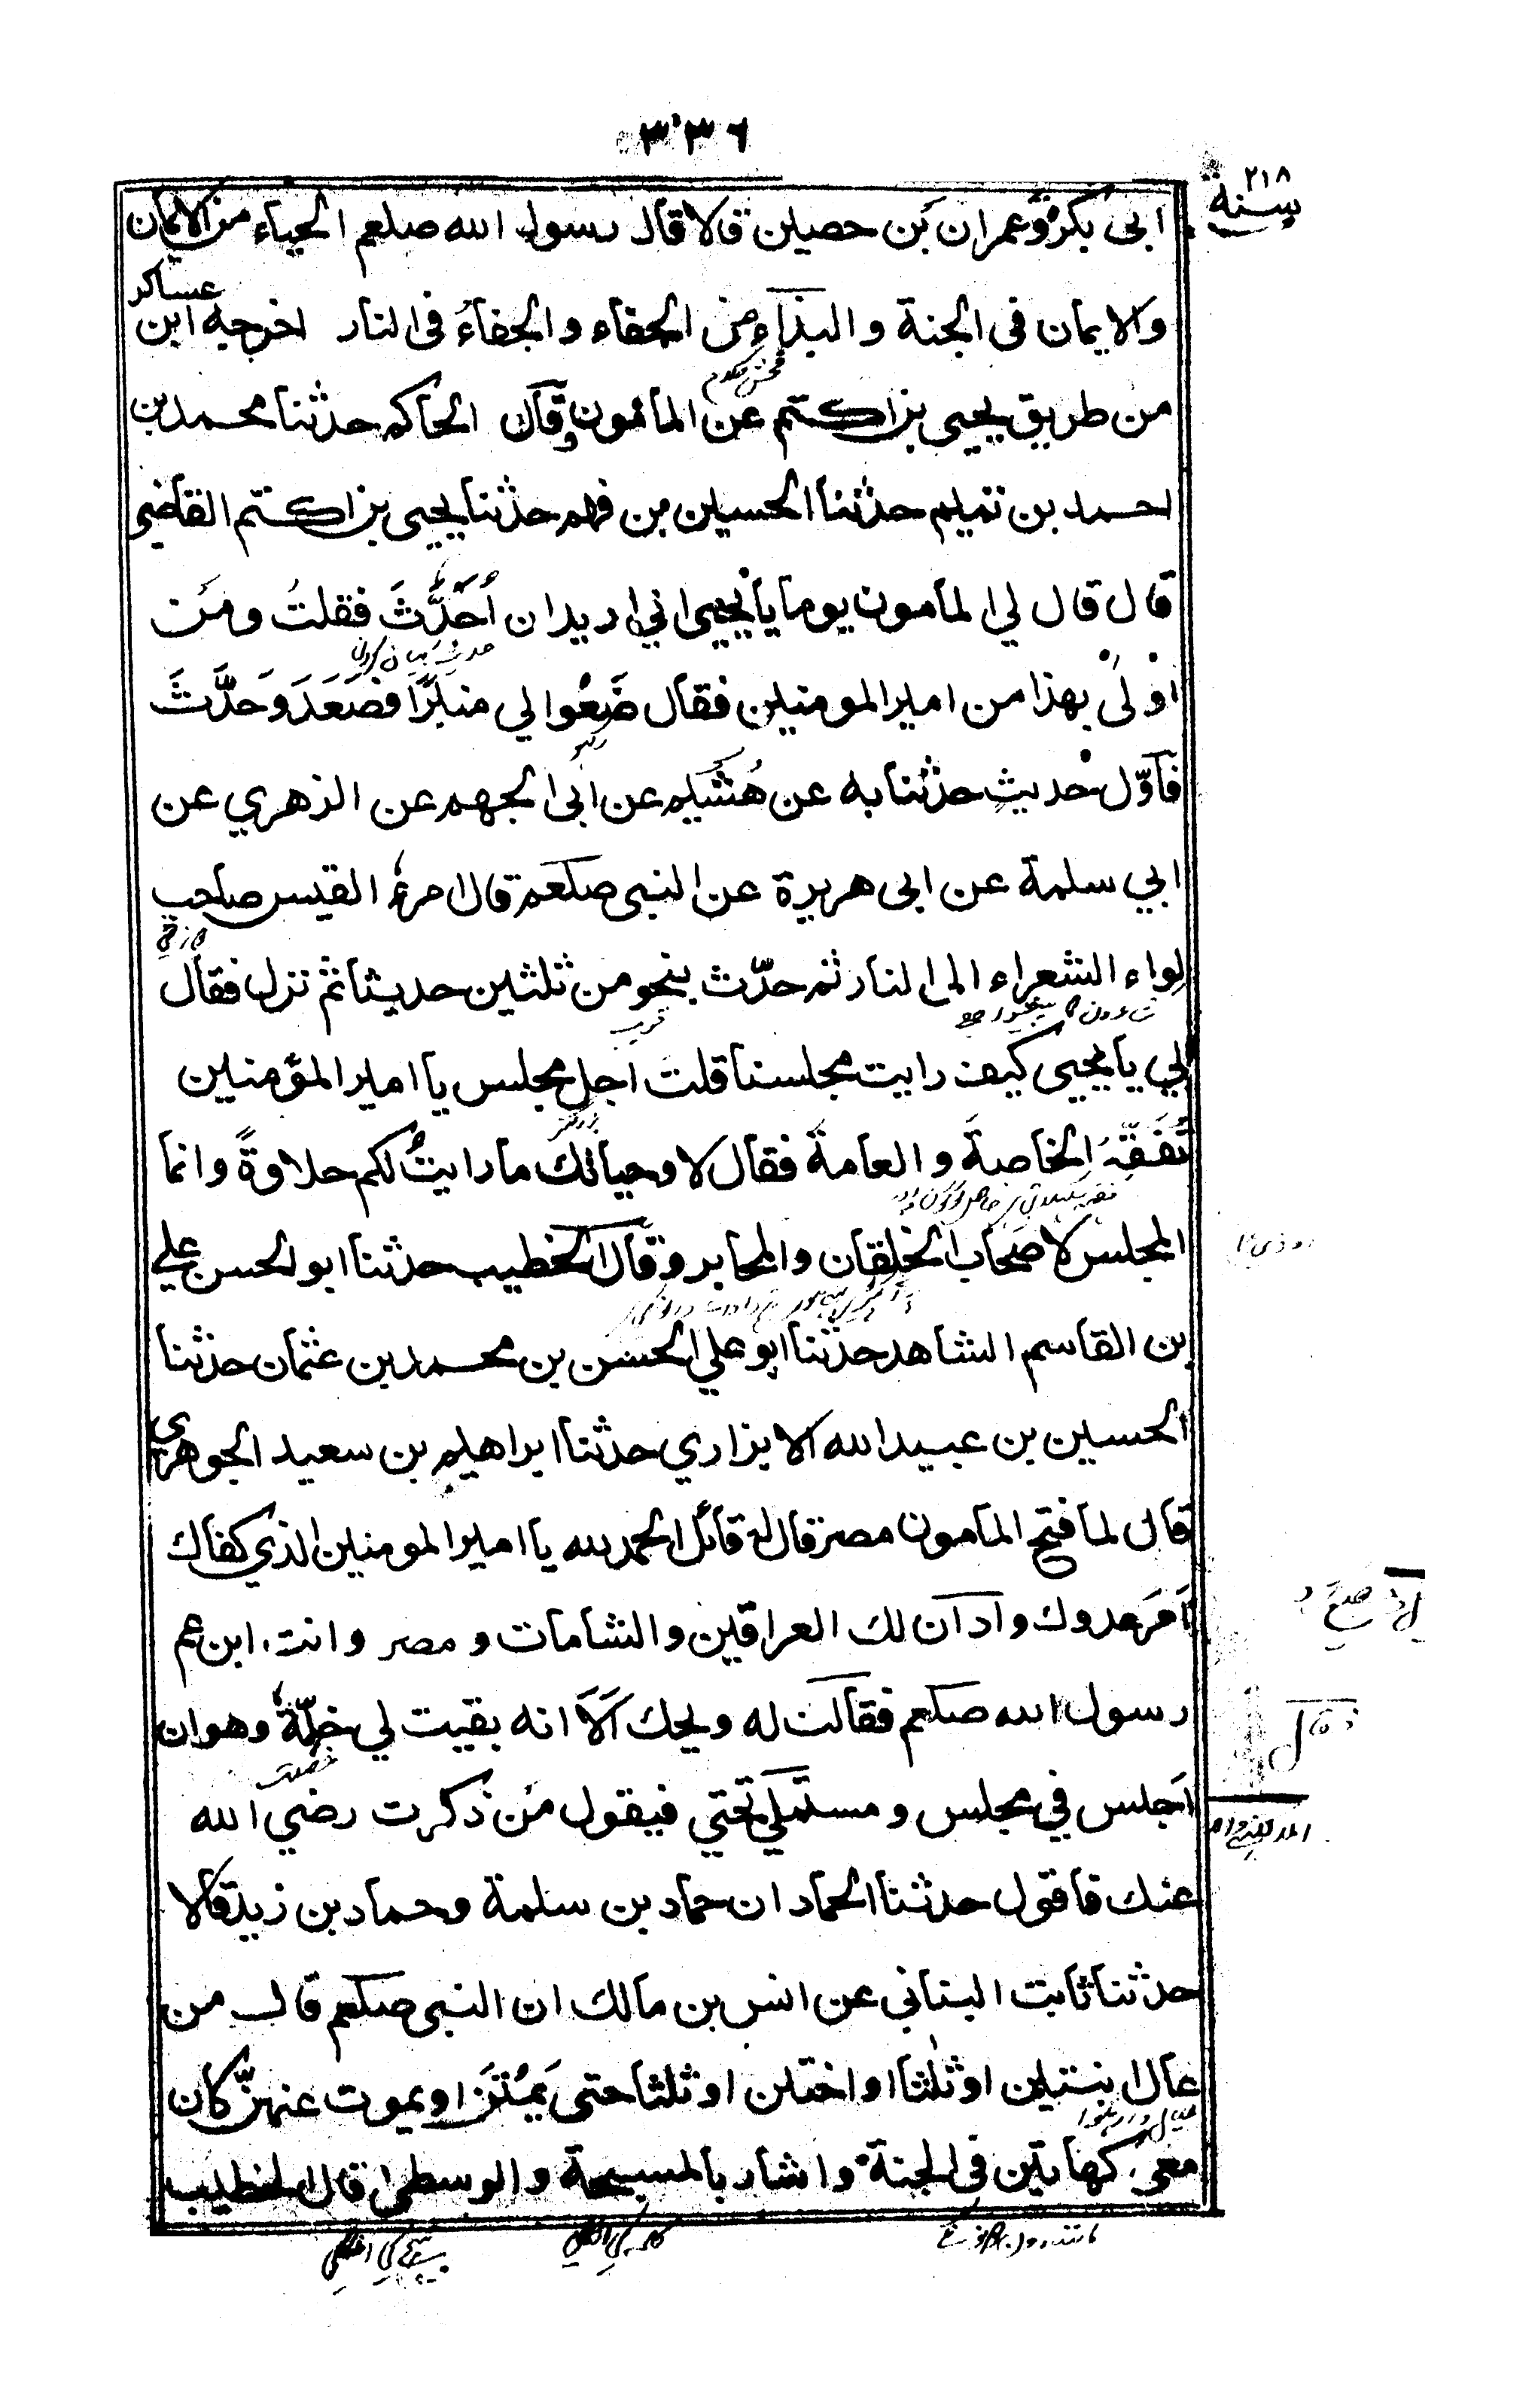 ٣٣٦
سنة ٢١٨
ابى بكرة وعمران بن حصين قالا قال رسول الله صلعم الحياء من الايمان
والايمان فى الجنة والبذاء من الجفاء والجفاء فى النار اخرجه ابن عساكر
من طريق يحيى بن اكثم عن المامون وقال الحاكم حدثنا محمد بن
احمد بن تميم حدثنا الحسين بن فهم حدثنا يحيى بن اكثم القاضي
قال قال لي المامون يوما يا يحيى اني اريد ان اُحَدِّثَ فقلتُ ومن
اولى بهذا من امير المومنين فقال ضَعُوا لي منبرًا فصَعَدَ وَحدَّثَ
فاَوّل حديثٍ حدثنا به عن هُشَيم عن ابى الجهم عن الزهري عن
ابي سلمة عن ابى هريرة عن النبى صلعم قال امرء القيس صاحب
لِواء الشعراء الى النار ثم حدّث بنحو من ثلثين حديثا ثم نزل فقال
لي يا يحيى كيف رايت مجلسنا قلت اجل مجلس يا امير المؤمنين
تُفَقِّهُ الخاصةَ والعامةَ فقال لا وحياتك ما رايتُ لكم حلاوةً وانما
المجلس لاصحاب الخلقان والمحابر وقال الخطيب حدثنا ابو الحسن علي
بن القاسم الشاهد حدثنا ابو علي الحسن بن محمد بن عثمان حدثنا
الحسين بن عبيد الله الابزاري حدثنا ابراهيم بن سعيد الجوهري
قال لما فتح المامون مصر قال له قائل الحمد لله يا امير المومنين الذي كفاك
اَمر عدوك وادان لك العراقين والشامات ومصر وانت ابن عم
رسول الله صلعم فقال له ويحك اَلاَ انه بقيت لي خلّة وهو ان
اَجلس في مجلس ومستملي تحتي فيقول مَن ذكرت رضي الله
عنك فاقول حدثنا الحمادان حماد بن سلمة وحماد بن زيد قالا
حدثنا ثابت البناني عن انس بن مالك ان النبى صلعم قال من
عال ابنتين او ثلثا او اختين او ثلثا حتى يَمُتْنَ او يموت عنهنّ كان
معى كهاتين فى الجنة واشار بالمسبحة والوسطى قال الخطيب